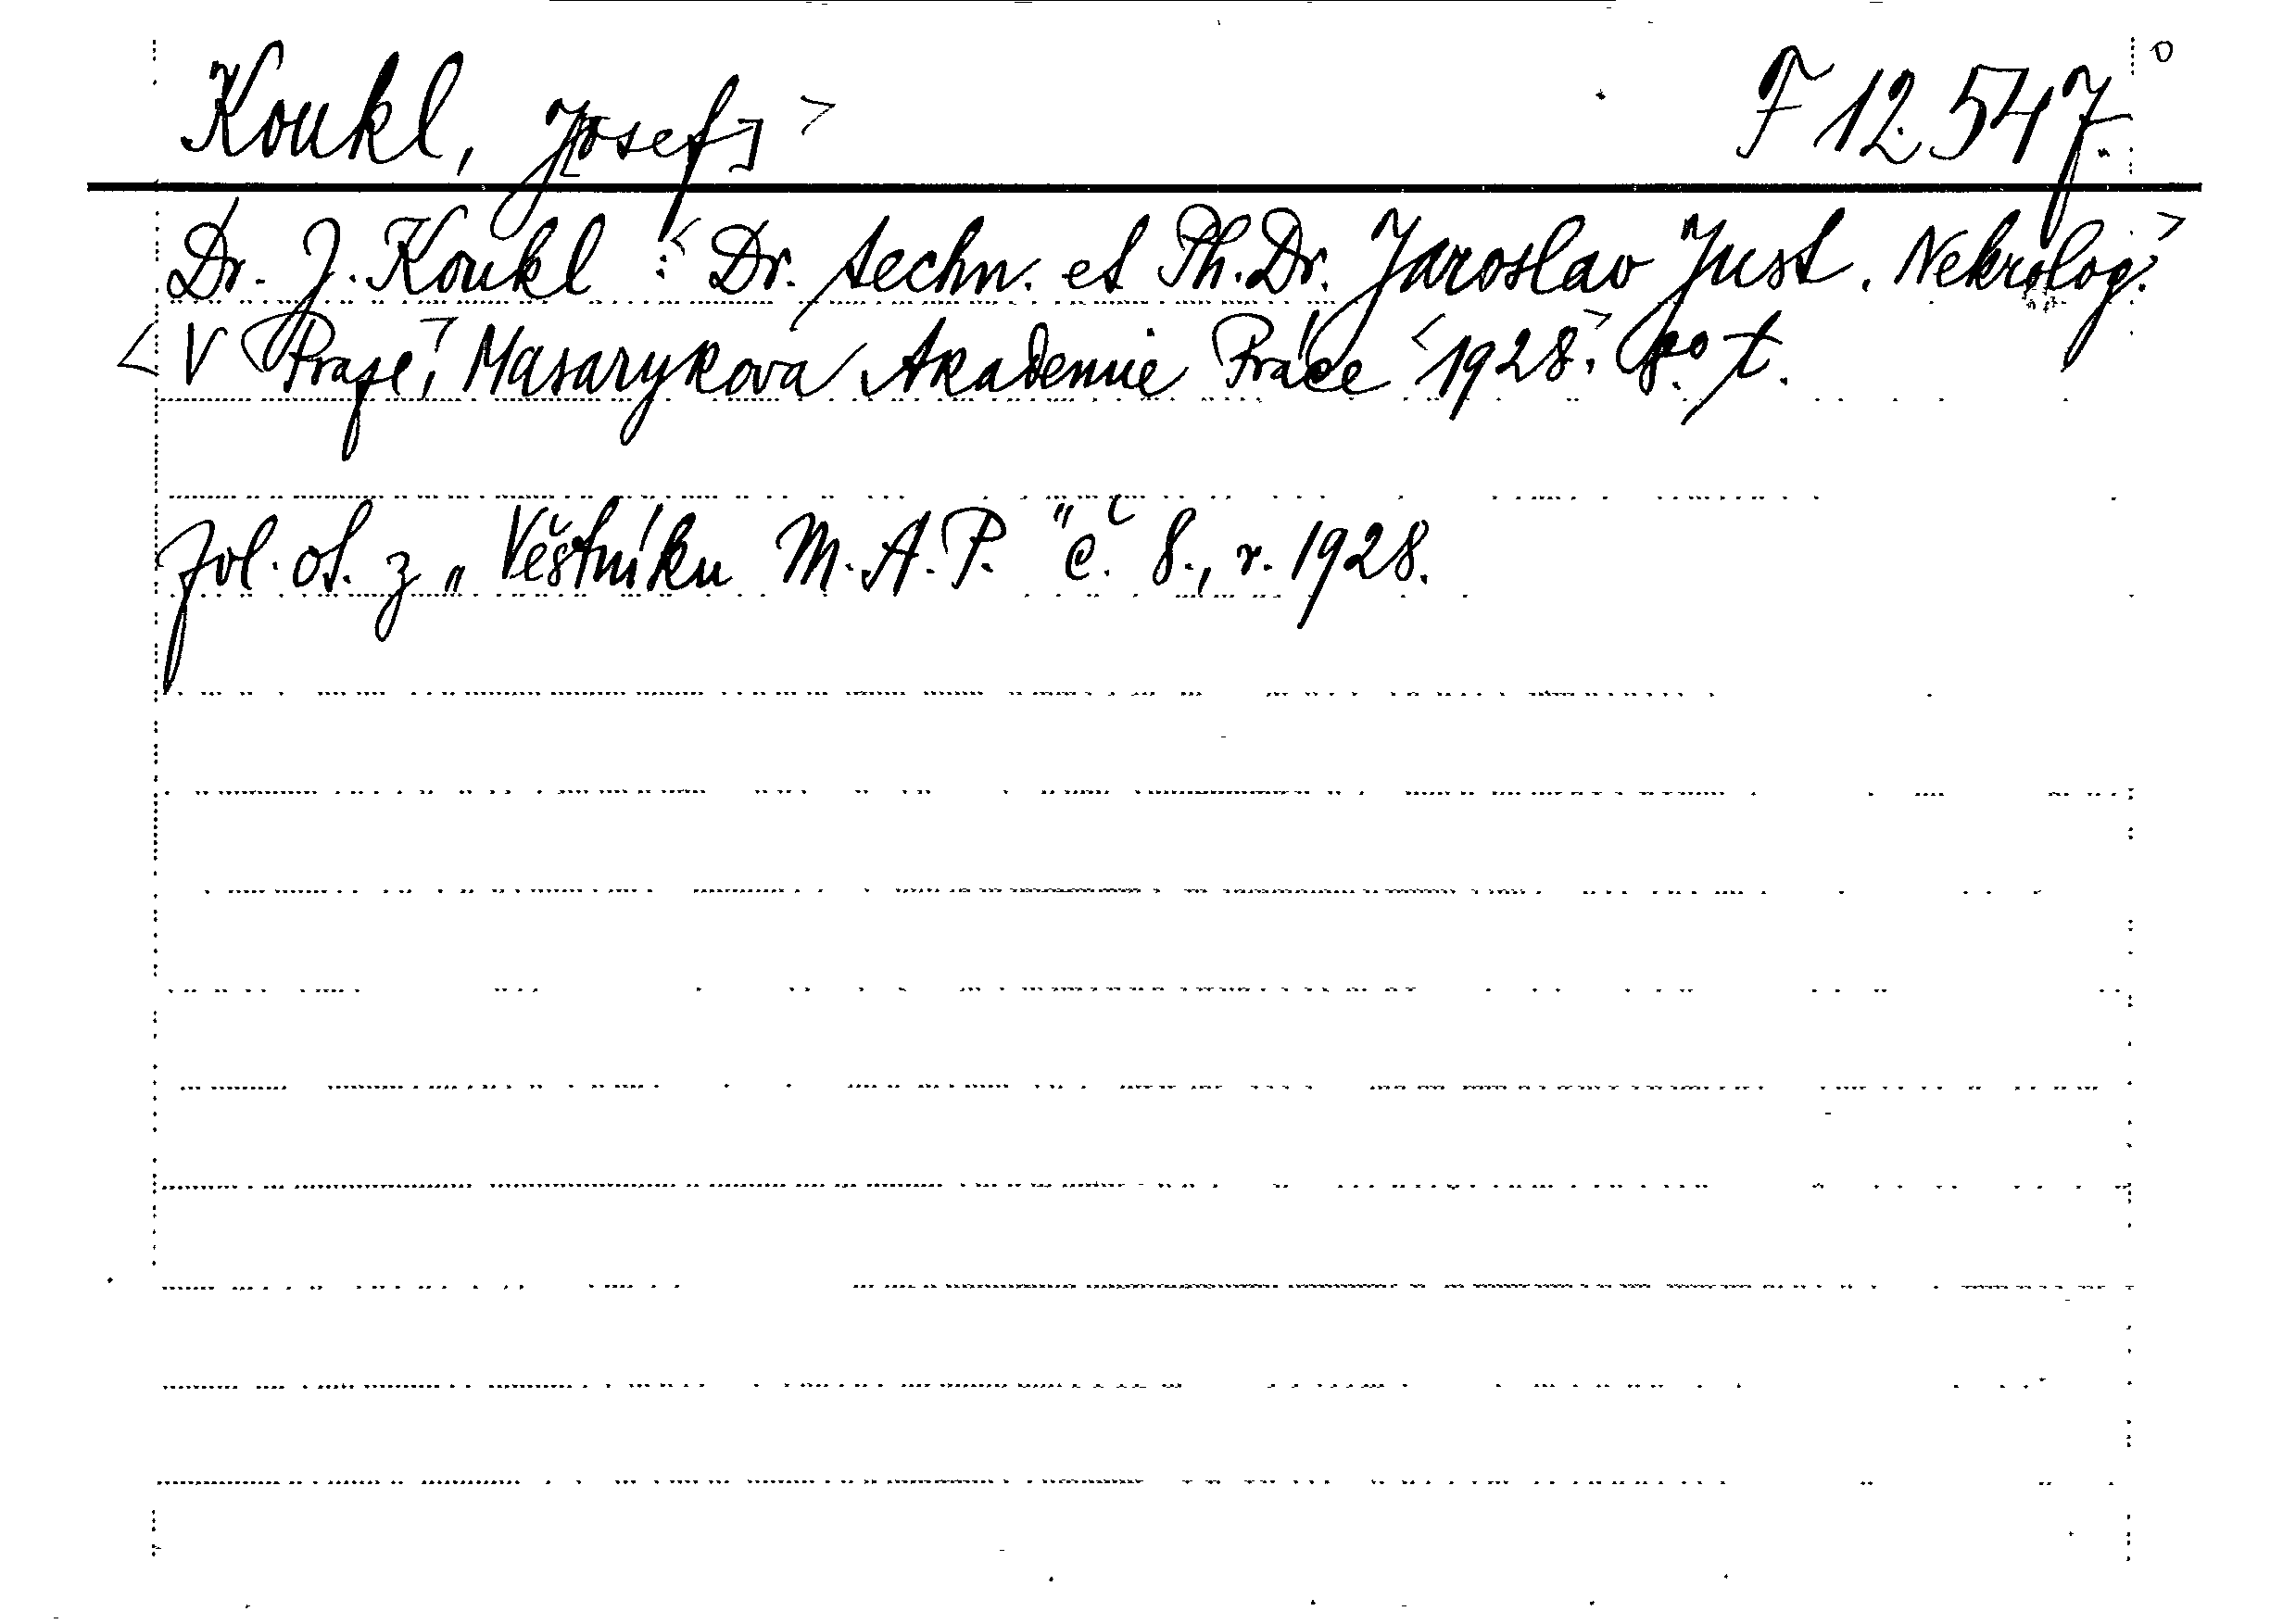 Koukl, J[osef] > F 12.547.
Dr. J. Koukl: <Dr. techn. et Ph. Dr. Jaroslav Just. Nekrolog.>
<V Praze,> Masarykova Akademie Práce <1928.> 8° t.
Zvl. ot. z „Věstníku M. A. P." č. 8., r. 1928.